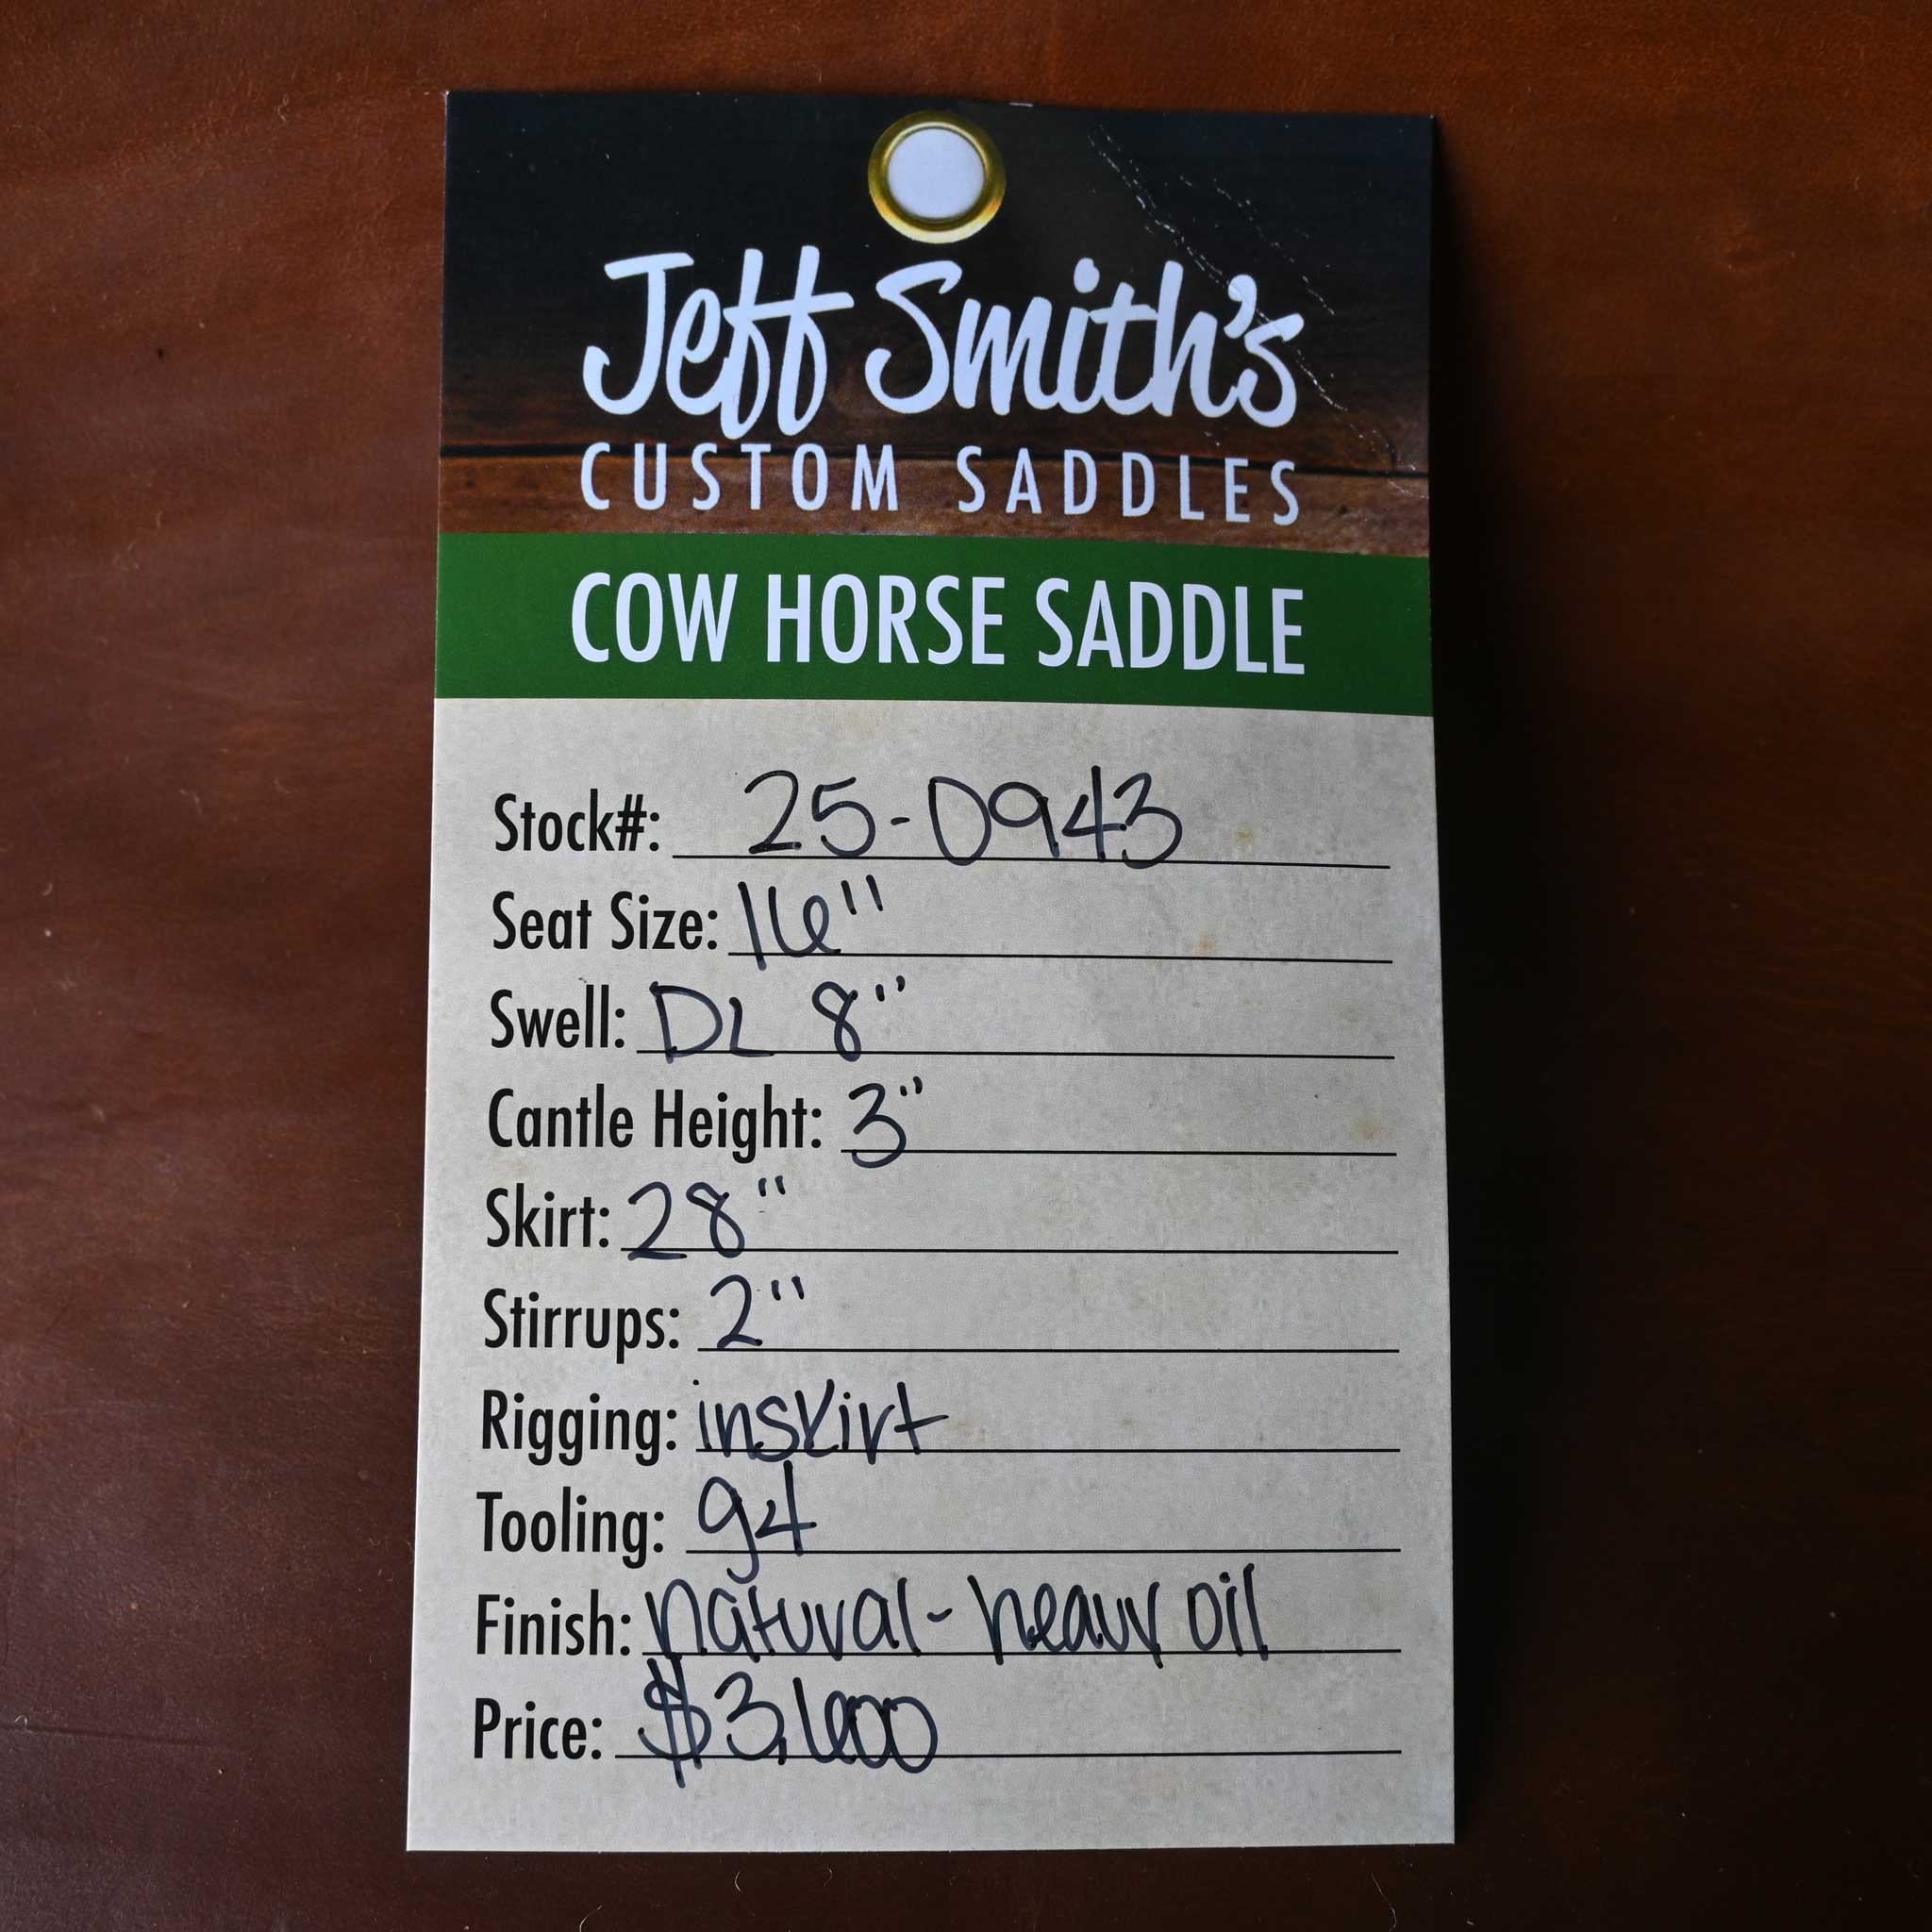 Jeff Smith's
CUSTOM SADDLES
COW HORSE SADDLE
Stock#: 25-0943
Seat Size: 16"
Swell: DL 8"
Cantle Height: 3"
Skirt: 28"
Stirrups: 2"
Rigging: inskirt
Tooling: g4
Finish: natural- heavy oil
Price: $3,600